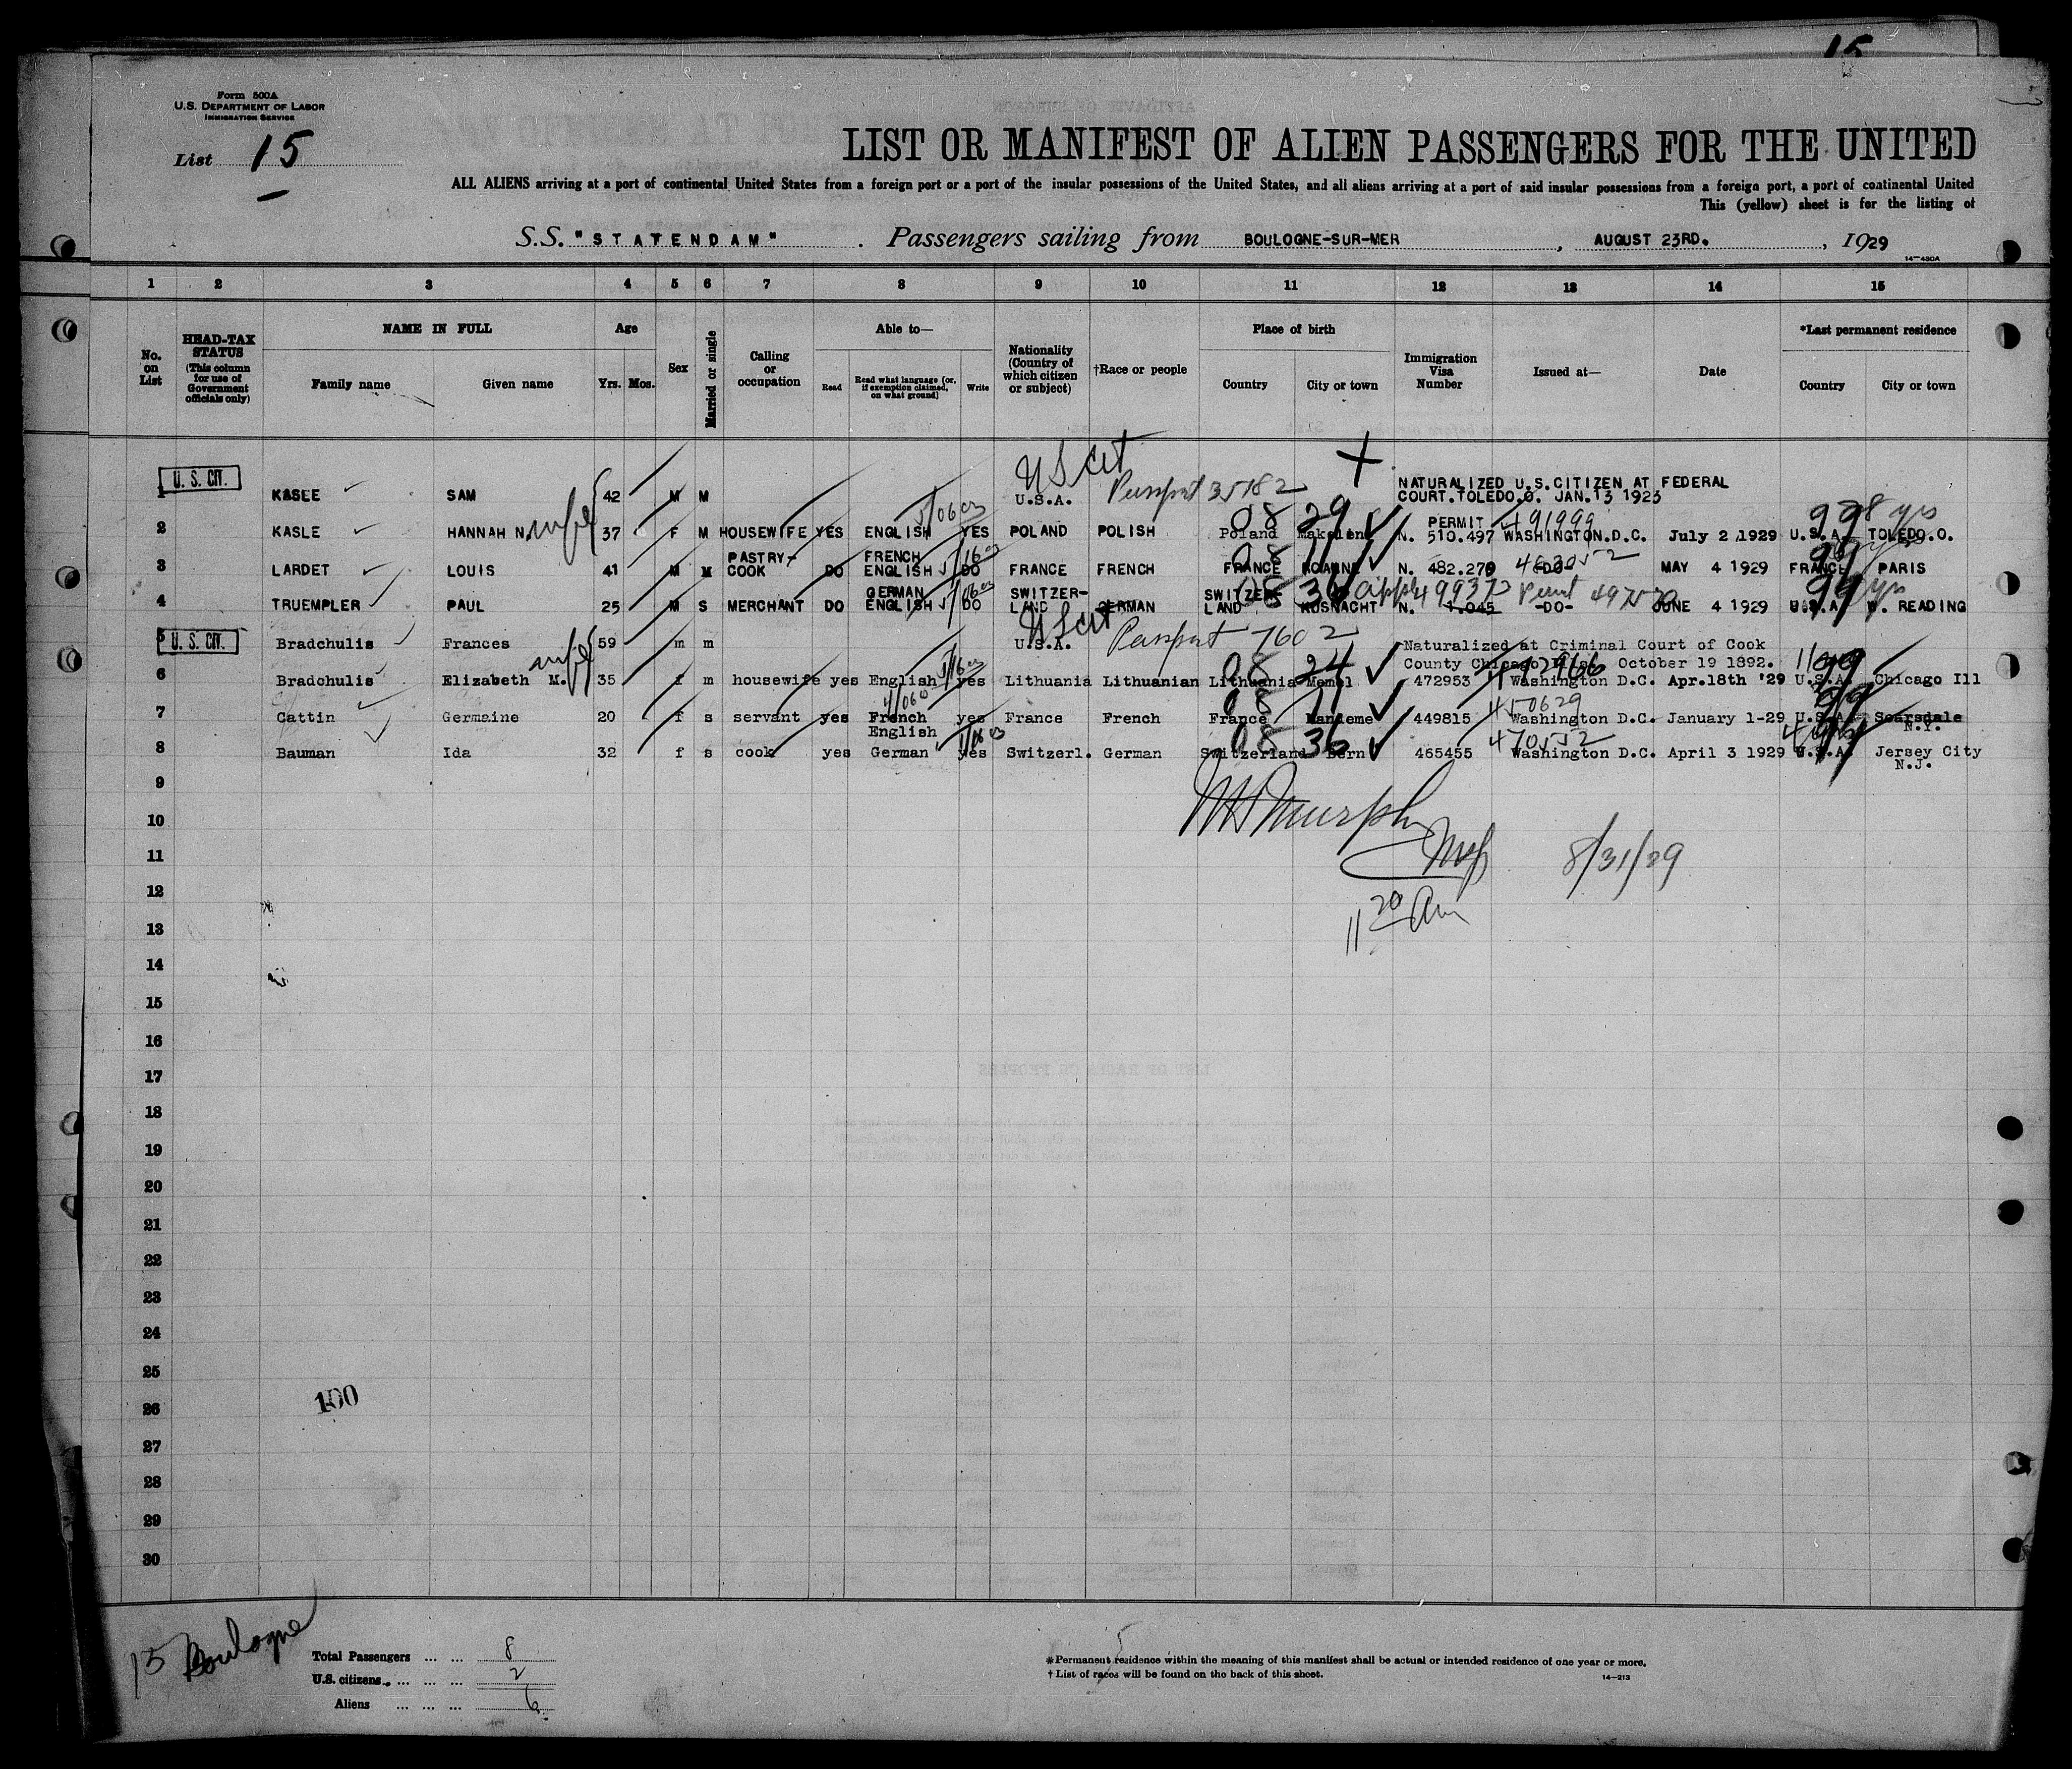 15
Form 500A
U.S. DEPARTMENT OF LABOR
IMMIGRATION SERVICE
List 15
LIST OR MANIFEST OF ALIEN PASSENGERS FOR THE UNITED
ALL ALIENS arriving at a port of continental United States from a foreign port or a port of the insular possessions of the United States, and all aliens arriving at a port of said insular possessions from a foreign port, a port of continental United
This (yellow) sheet is for the listing of
S.S. "STATENDAM" . Passengers sailing from BOULOGNE-SUR-MER , AUGUST 23RD. , 1929
14-430A
1 2 3 4 5 6 7 8 9 10 11 12 13 14 15
No. on List
HEAD-TAX STATUS (This column for use of Government officials only)
NAME IN FULL
Family name Given name
Age
Yrs. Mos.
Sex
Married or single
Calling or occupation
Able to—
Read
Read what language [or, if exemption claimed, on what ground]
Write
Nationality (Country of which citizen or subject)
†Race or people
Place of birth
Country City or town
Immigration Visa Number
Issued at—
Date
*Last permanent residence
Country City or town
U. S. CIT.
1 KASLE SAM 42 M M U.S.A. US cit Passport 35182 NATURALIZED U.S.CITIZEN AT FEDERAL
COURT.TOLEDO.O. JAN.13 1923
2 KASLE HANNAH N. wife 37 F M HOUSEWIFE YES ENGLISH YES POLAND POLISH Poland 08 29 PERMIT N. 510.497 491999 WASHINGTON.D.C. July 2 1929 U.S.A. TOLEDO.O. 99 8 yrs
3 LARDET LOUIS 41 M M PASTRY-COOK DO FRENCH ENGLISH DO FRANCE FRENCH FRANCE ROANNE 08 11 N. 482.279 -DO- MAY 4 1929 FRANCE PARIS 99
4 TRUEMPLER PAUL 25 M S MERCHANT DO GERMAN ENGLISH DO SWITZER-LAND GERMAN SWITZER-LAND KUSNACHT 08 36 N. 1.045 -DO- JUNE 4 1929 U.S.A. W. READING 99 yrs
U. S. CIT.
5 Bradchulis Frances 59 m m U.S.A. US cit Passport 7602 Naturalized at Criminal Court of Cook
County Chicago Ills. October 19 1892.
6 Bradchulis Elizabeth M. wife 35 f m housewife yes English yes Lithuania Lithuanian Lithuania Memel 08 24 472953 Washington D.C. Apr.18th '29 U.S.A. Chicago Ill 99
7 Cattin Germaine 20 f s servant yes French English yes France French France 08 11 449815 450629 Washington D.C. January 1-29 U.S.A. Scarsdale N.Y. 99
8 Bauman Ida 32 f s cook yes German yes Switzerl. German Switzerland Bern 08 36 465455 470552 Washington D.C. April 3 1929 U.S.A. Jersey City N.J. 99
9
10
11
12
13
14
15
16
17
18
19
20
21
22
23
24
25
26
27
28
29
30
8/31/29
11 20 Am
100
15 Boulogne
Total Passengers ... ... 8
U.S. citizens. ... ... ... 2
Aliens ... ... ... 6
*Permanent residence within the meaning of this manifest shall be actual or intended residence of one year or more.
† List of races will be found on the back of this sheet.
14-213